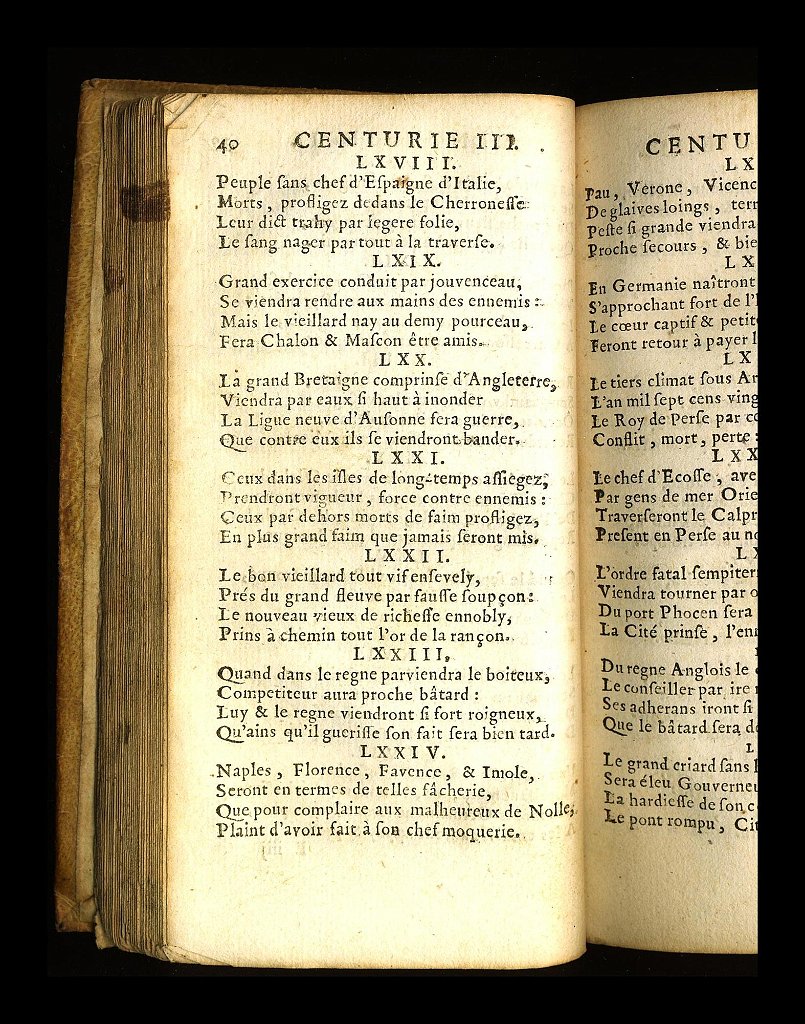 40 CENTURIE III.
LXVIII.
Peuple ſans chef d'Eſpaigne d'Italie,
Morts, profligez dedans le Cherroneſſe:
Leur dict trahy par legere folie,
Le ſang nager par tout à la traverſe.
LXIX.
Grand exercice conduit par jouvenceau,
Se viendra rendre aux mains des ennemis:
Mais le vieillard nay au demy pourceau,
Fera Chalon & Maſcon être amis.
LXX.
La grand Bretaigne comprinſe d'Angleterre,
Viendra par eaux ſi haut à inonder
La Ligue neuve d'Auſonne fera guerre,
Que contre eux ils ſe viendront bander.
LXXI.
Ceux dans les iſles de long-temps aſſiegez,
Prendront vigueur, force contre ennemis:
Ceux par dehors morts de faim profligez,
En plus grand faim que jamais ſeront mis.
LXXII.
Le bon vieillard tout vif enſevely,
Prés du grand fleuve par fauſſe ſoupçon:
Le nouveau vieux de richeſſe ennobly,
Prins à chemin tout l'or de la rançon.
LXXIII,
Quand dans le regne parviendra le boiteux,
Competiteur aura proche bâtard:
Luy & le regne viendront ſi fort roigneux,
Qu'ains qu'il gueriſſe ſon fait ſera bien tard.
LXXIV.
Naples, Florence, Favence, & Imole,
Seront en termes de telles fâcherie,
Que pour complaire aux malheureux de Nolle,
Plaint d'avoir fait à ſon chef moquerie.
CENTU
LX
Pau, Verone, Vicenc
De glaives loings, terr
Peſte ſi grande viendra
Proche ſecours, & bie
LX
En Germanie naîtront
S'approchant fort de l'
Le cœur captif & petit
Feront retour à payer l
LX
Le tiers climat ſous Ar
L'an mil ſept cens ving
Le Roy de Perſe par co
Conflit, mort, perte:
LXX
Le chef d'Ecoſſe, ave
Par gens de mer Orie
Traverſeront le Calpr
Preſent en Perſe au no
LX
L'ordre fatal ſempiter
Viendra tourner par o
Du port Phocen ſera
La Cité prinſe, l'enn
Du regne Anglois le
Le conſeiller par ire
Ses adherans iront ſi
Que le bâtard ſera de
L
Le grand criard ſans
Sera éleu Gouverneu
La hardieſſe de ſon c
Le pont rompu, Cit